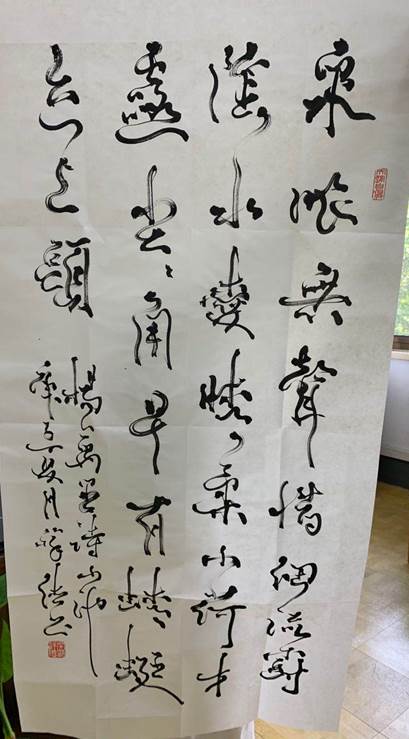 泉眼無聲惜細流樹
蔭水愛晴柔小荷才
露尖〻角早有蜻蜓
立上頭
楊萬里詩小池
夏月